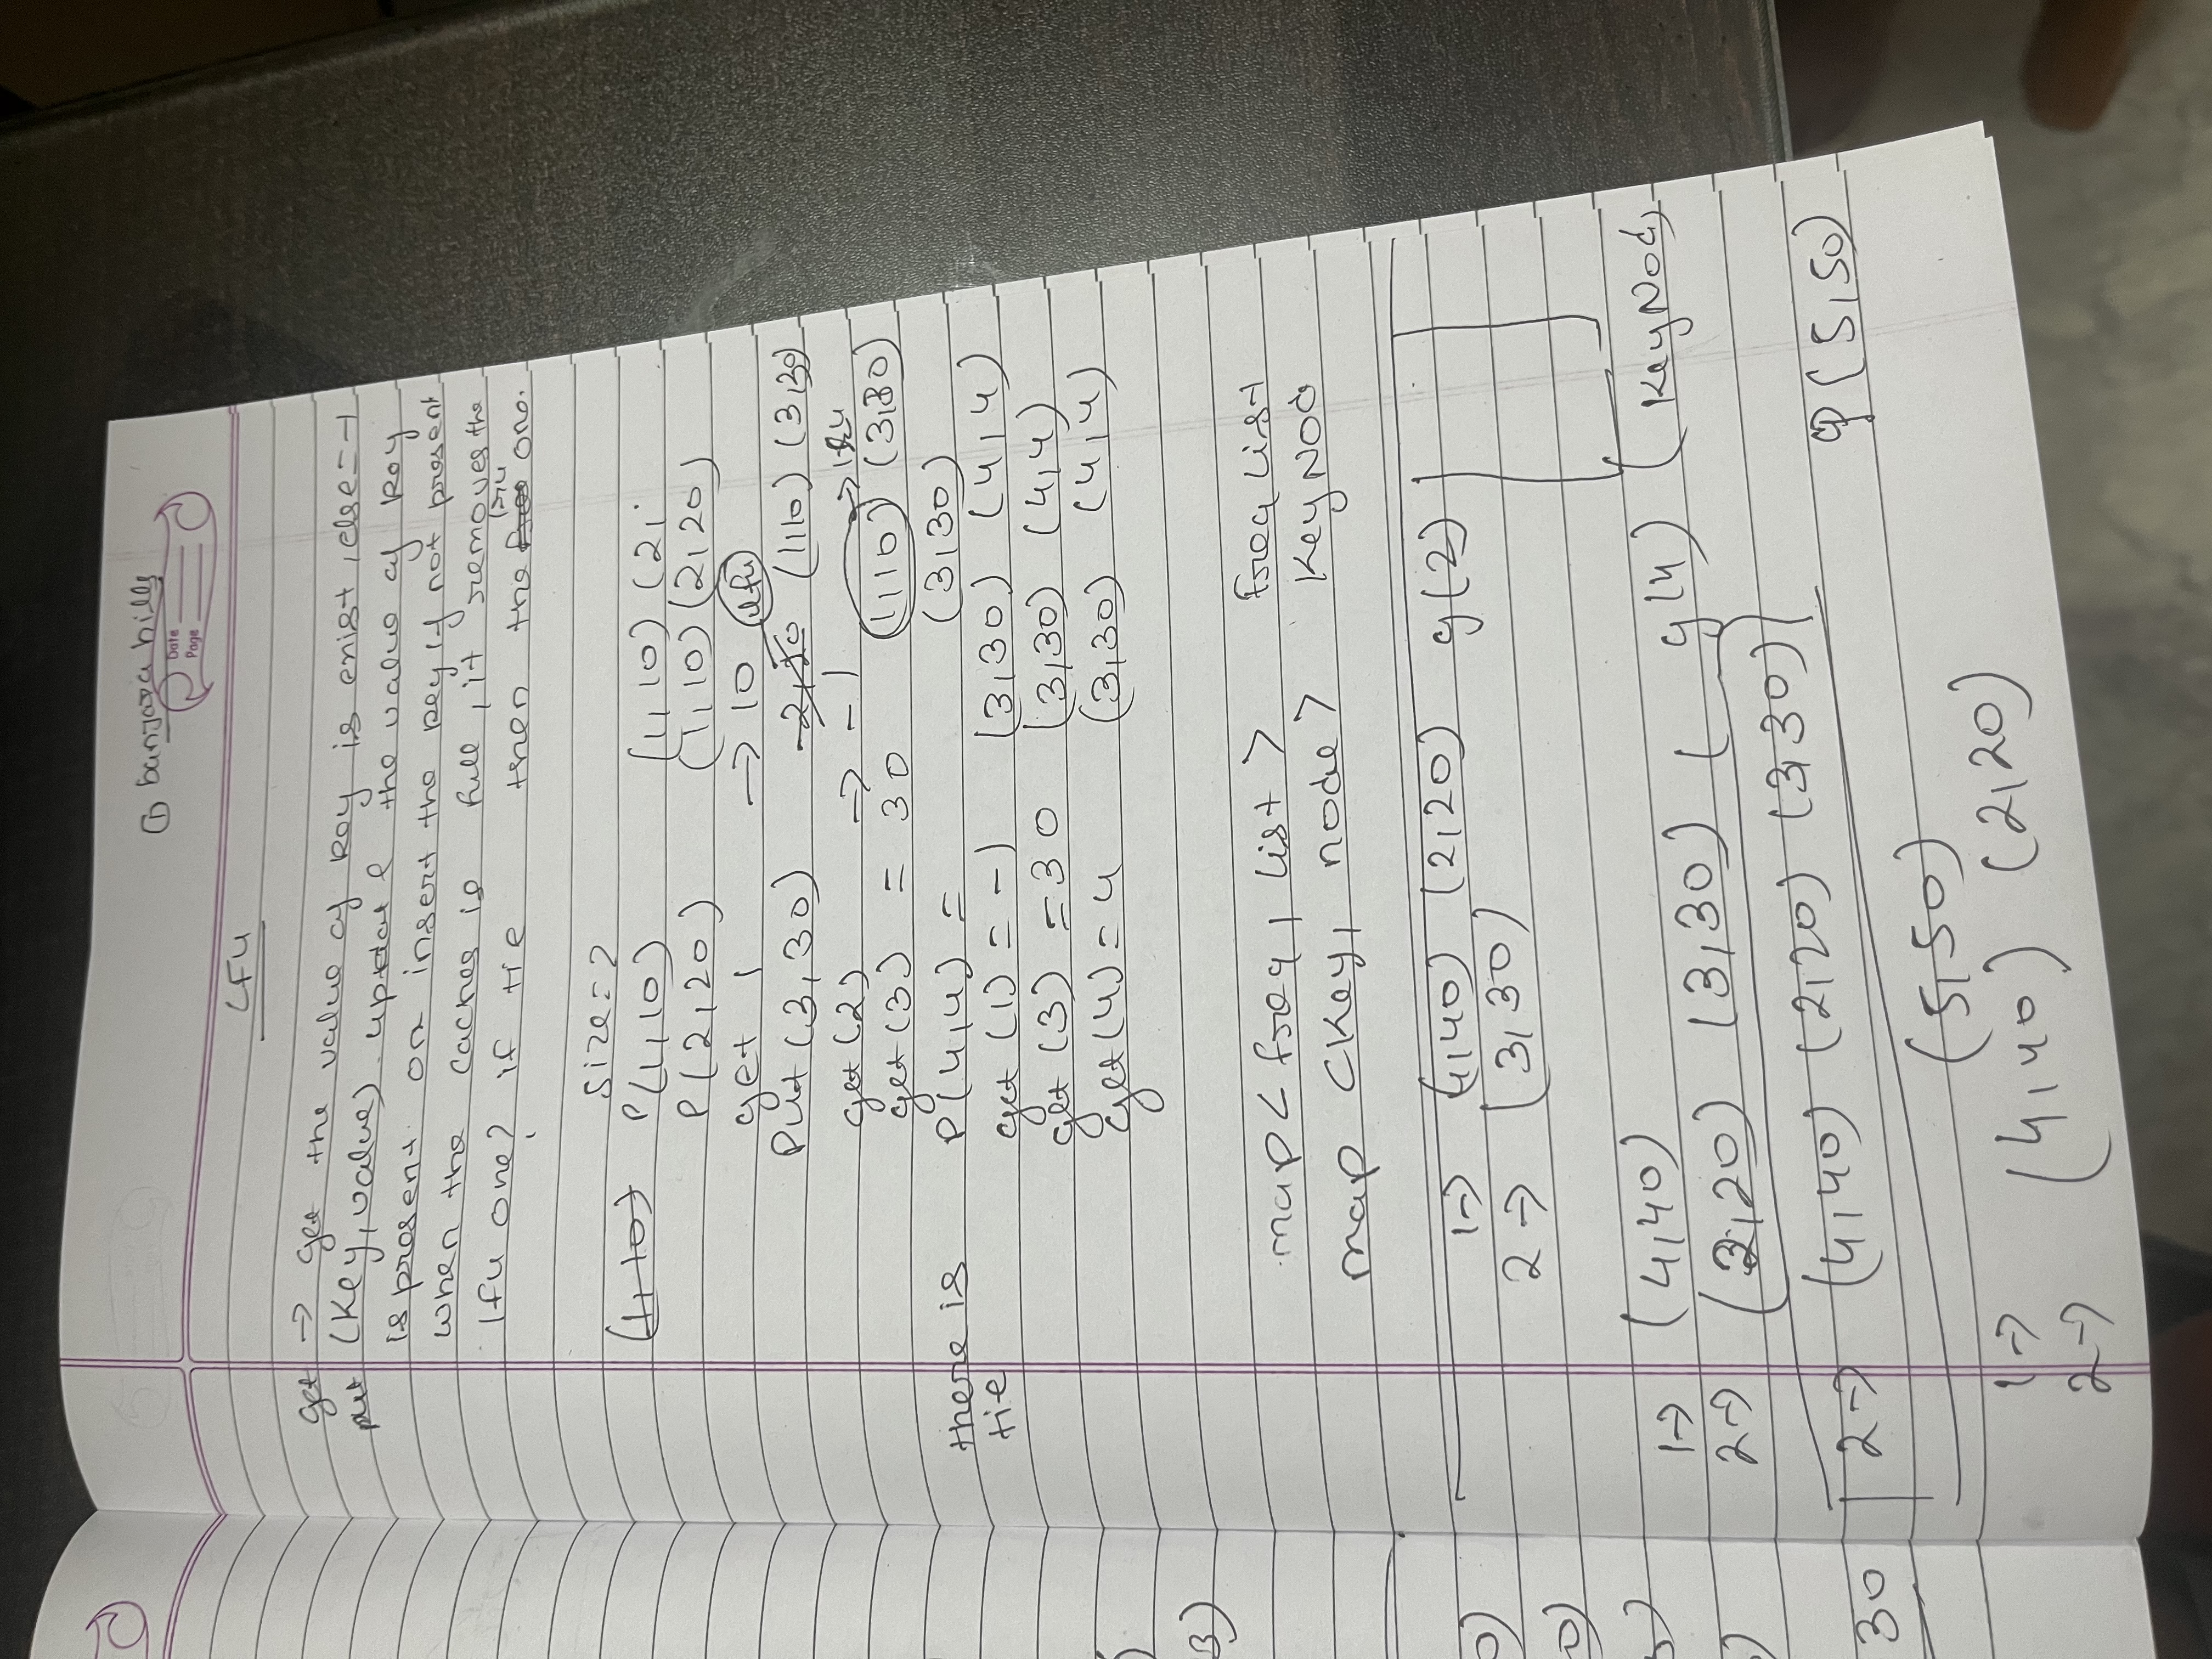 ① banjara hills
Date
Page
LFU
get → get the value of key is exist, else = -1
put (Key, value) update the value of key
is present or insert the key if not present
when the caches is full, it removes the
lfu one? if tie then the lru one.
size = 2
(1,10) P(1,10) (1,10) (2,
P(2,20) (1,10) (2,20)
get 1 → 10 lfu
Put (3,30) 2,20 (1,10) (3,30)
get (2) → -1 lru
get (3) = 30 (1,10) (3,30)
there is P(4,4) = (3,30)
tie get (1) = -1 (3,30) (4,4)
get (3) = 30 (3,30) (4,4)
get (4) = 4 (3,30) (4,4)
map < freq, list > freq list
map < Key, node > Key Nod
1 → (4,40) (2,20) g(2)
2 → (3,30)
1 → (4,40) g(4) (KeyNod)
2 → (2,20) (3,30) (
2 → (4,40) (2,20) (3,30)
P(5,50)
(5,50)
1 →
2 → (4,40) (2,20)
3)
0)
0)
30